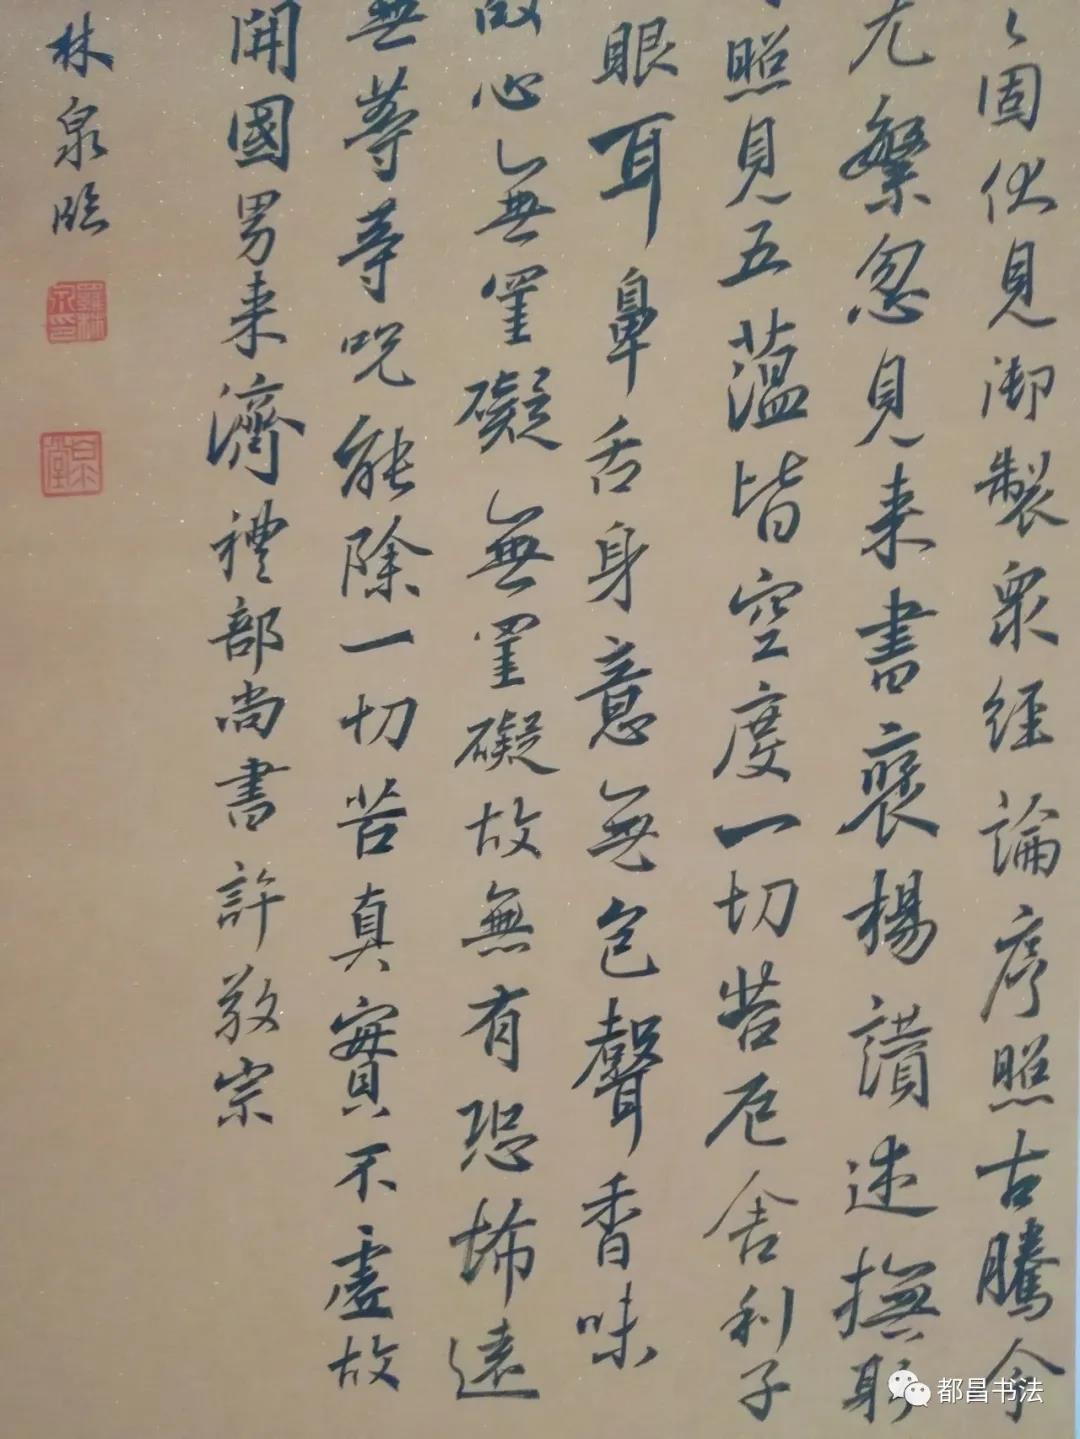 固伏見御製衆經論序照古騰今
尤繁忽見来書褒揚讃述撫躬
照見五蕰皆空度一切苦厄舍利子
眼耳鼻舌身意無色聲香味
故心無罣礙無罣礙故無有恐怖遠
無等等咒能除一切苦真實不虛故
開國男来濟禮部尚書許敬宗
林泉臨
都昌书法